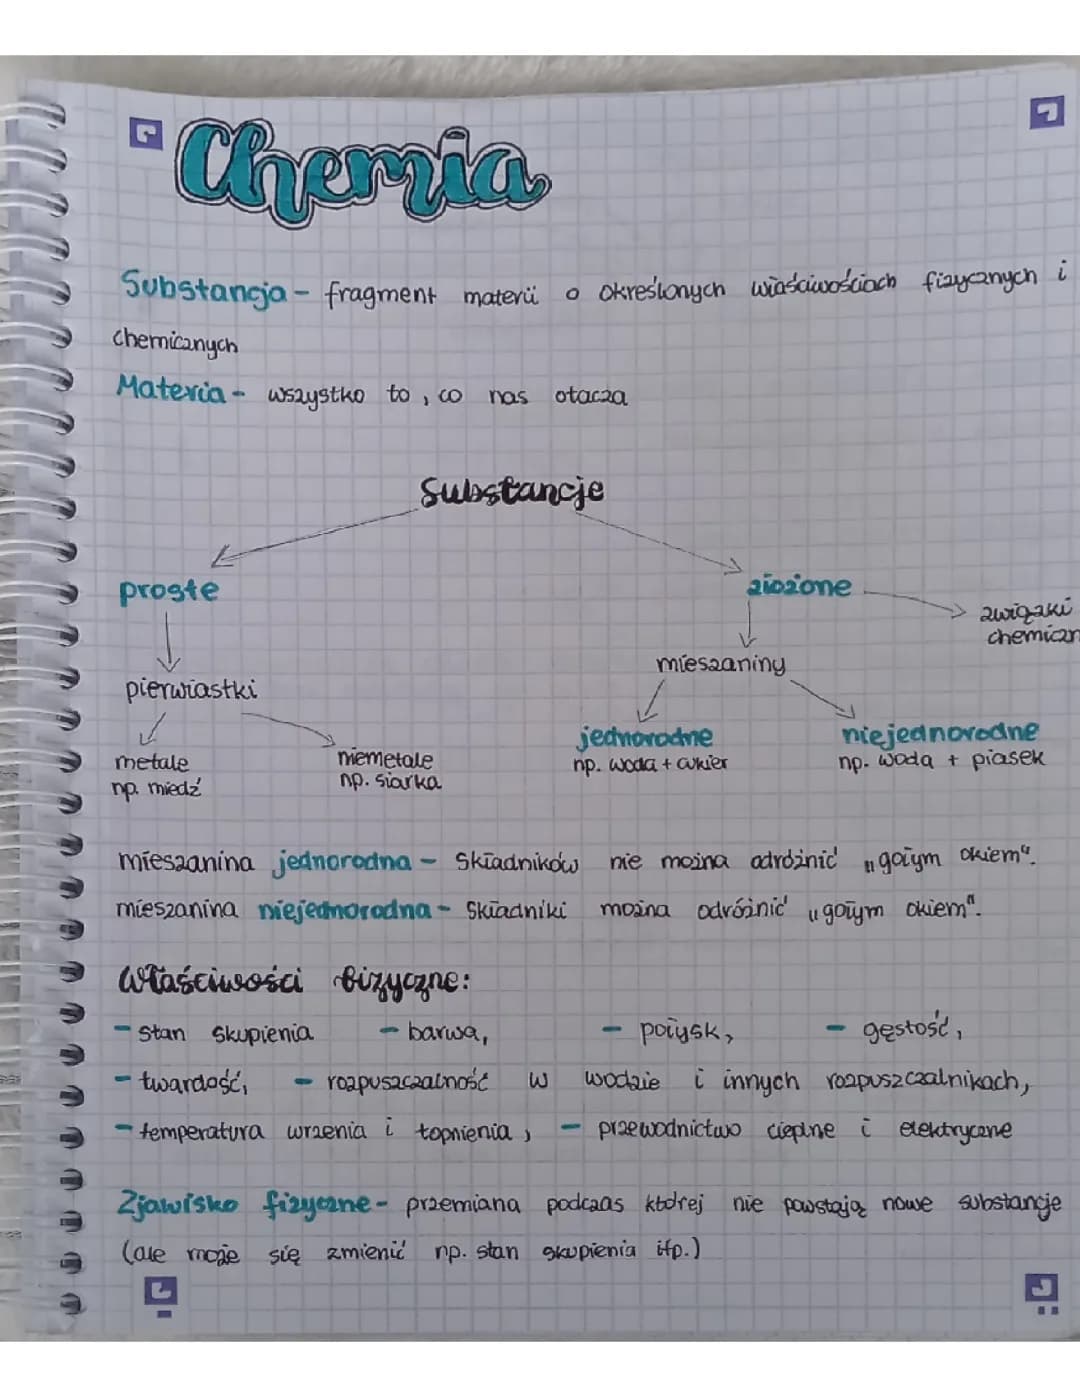 Chemia
Substancja - fragment materii o określonych właściwościach fizycznych i
chemicznych
Materia - wszystko to, co nas otacza
Substancje
proste
złożone
związki
chemiczn
mieszaniny
pierwiastki
jednorodne
niejednorodne
metale
niemetale
np. woda + cukier
np. woda + piasek
np. miedź
np. siarka
mieszanina jednorodna - Składników nie można odróżnić „gołym okiem".
mieszanina niejednorodna - Składniki można odróżnić „gołym okiem".
Właściwości fizyczne:
- stan skupienia - barwa, - połysk, - gęstość,
- twardość, - rozpuszczalność w wodzie i innych rozpuszczalnikach,
- temperatura wrzenia i topnienia, - przewodnictwo cieplne i elektryczne
Zjawisko fizyczne - przemiana podczas której nie powstają nowe substancje
(ale może się zmienić np. stan skupienia itp.)